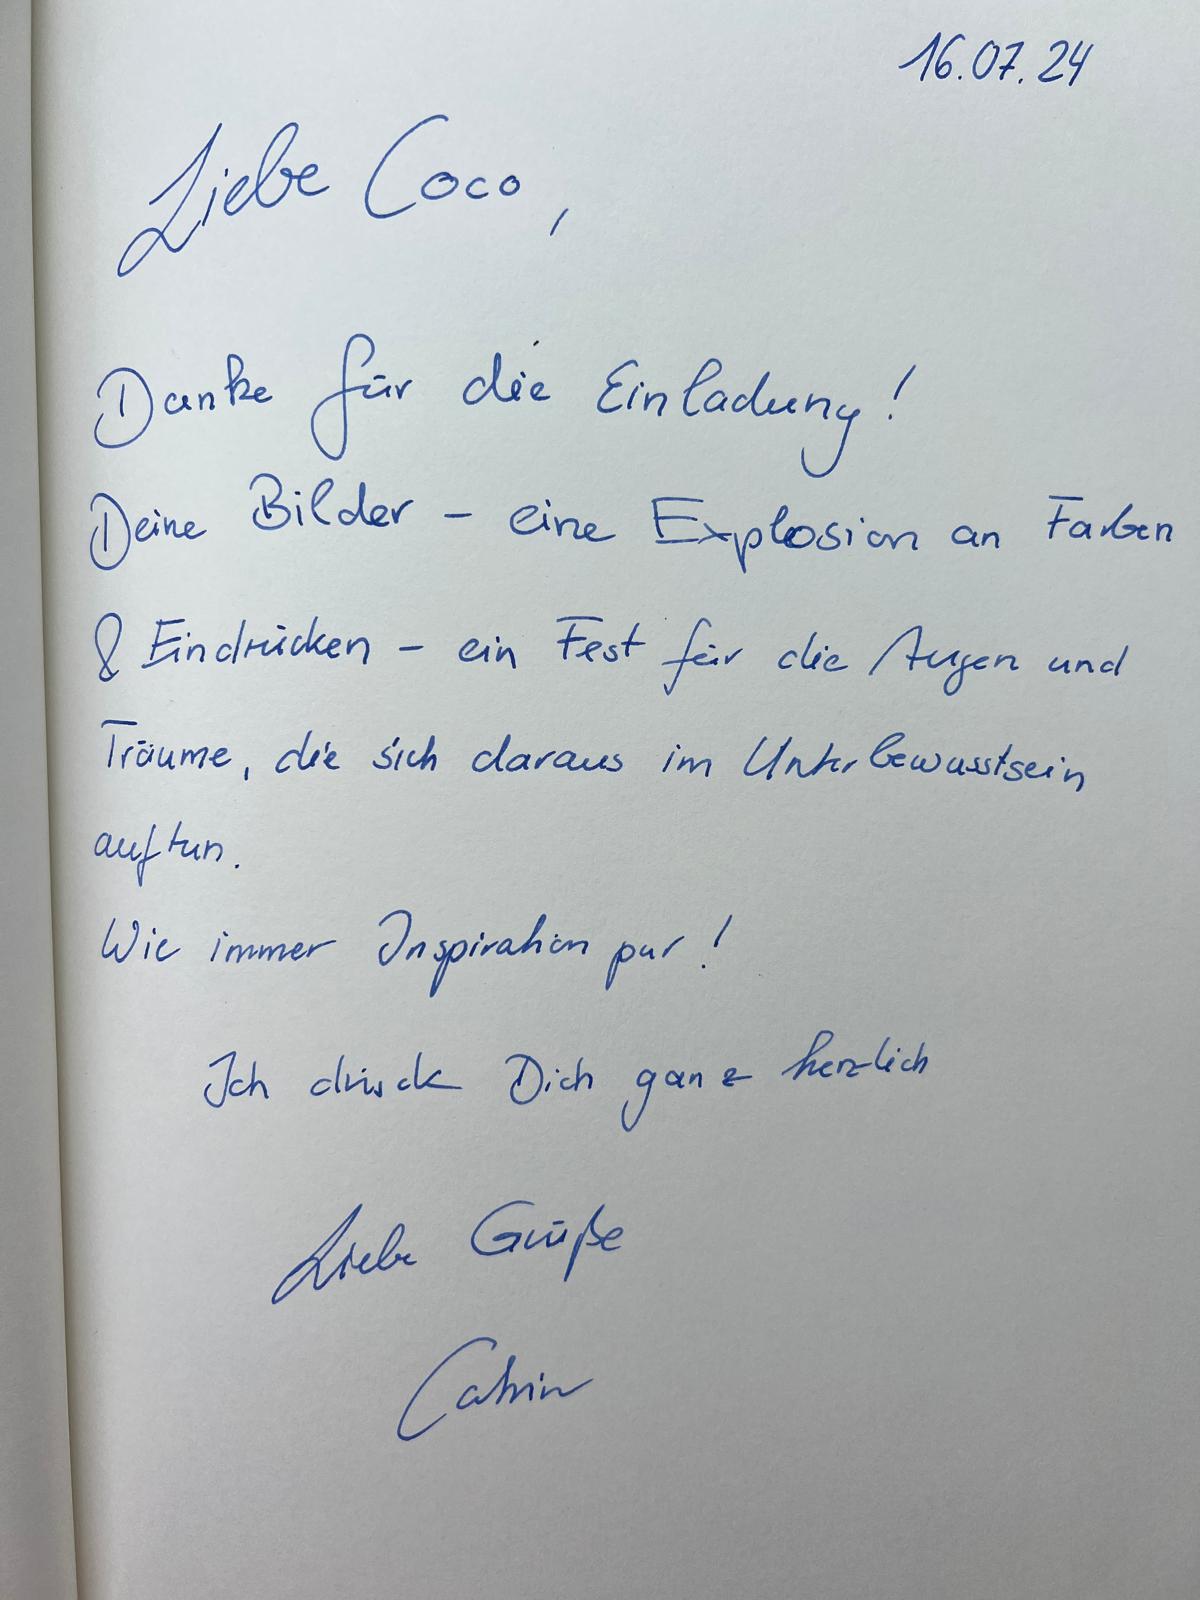 16.07.24
Liebe Coco,
Danke für die Einladung!
Deine Bilder – eine Explosion an Farben
& Eindrücken – ein Fest für die Augen und
Träume, die sich daraus im Unterbewusstsein
auftun.
Wie immer Inspiration pur!
Ich drück Dich ganz herzlich
Liebe Grüße
Catrin